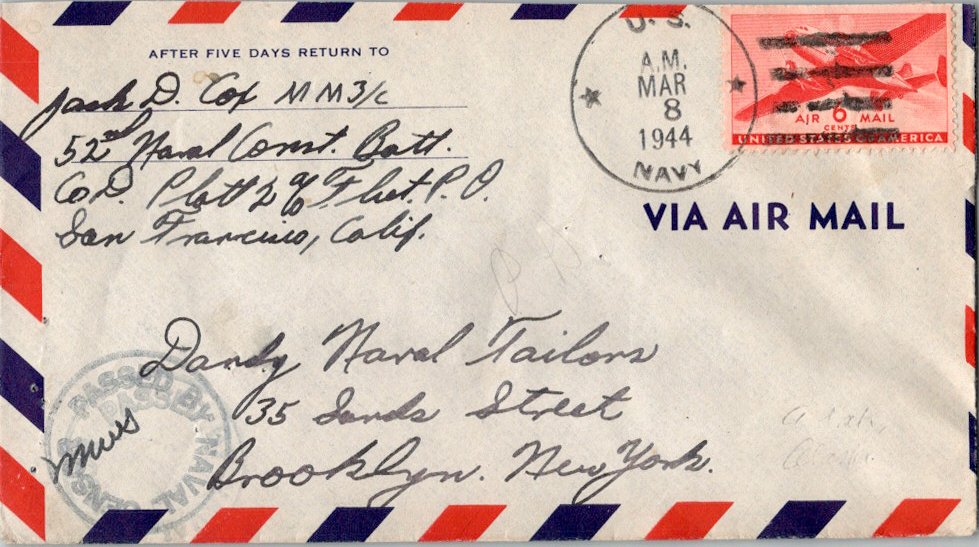 AFTER FIVE DAYS RETURN TO
Jack D. Cox MM3/c
52nd Naval Const. Batt.
Co D. Platt 2 % Fleet. P. O.
San Francisco, Calif.
U. S.
A.M.
MAR
8
1944
NAVY
AIR 6 MAIL
CENTS
UNITED STATES OF AMERICA
VIA AIR MAIL
Dandy Naval Tailors
35 Sands Street
Brooklyn. New York.
PASSED BY NAVAL CENSOR
PASSED